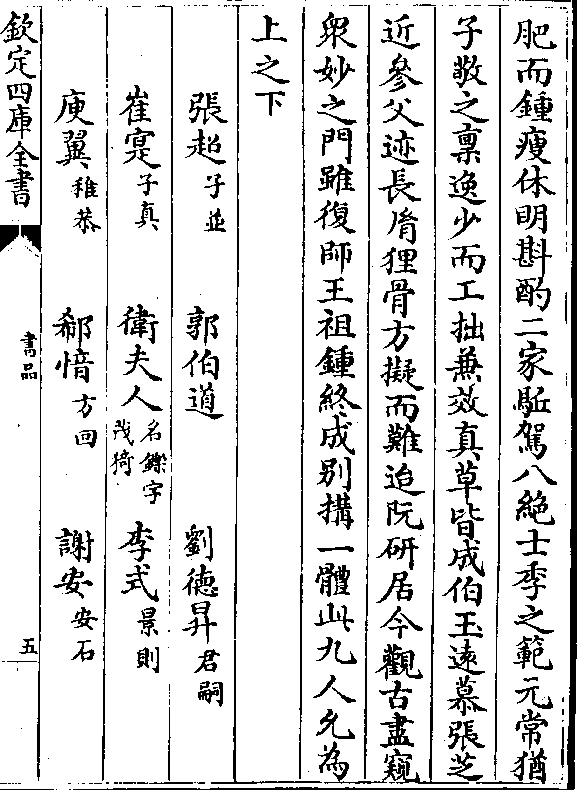 肥而鍾瘦休明斟酌二家駈駕八絶士季之範元常猶
子敬之稟逸少而工拙兼效真草皆成伯玉遠慕張芝
近參父迹長胤狸骨方擬而難迨阮研居今觀古盡窺
衆妙之門雖復師王祖鍾終成别構一體此九人允為
上之下
張超子並 郭伯道 劉徳昇君嗣
崔寔子真 衛夫人名鑠字茂猗 李式景則
庾翼稚恭 郗愔方回 謝安安石
欽定四庫全書 書品 五